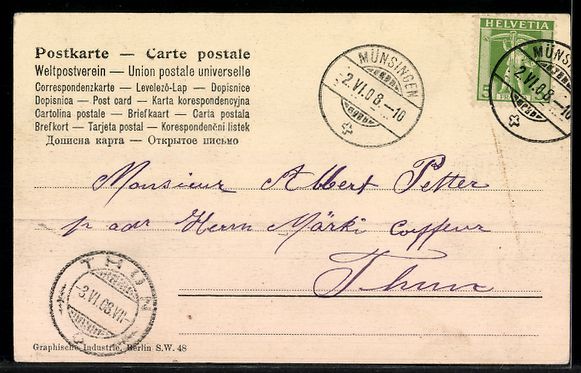 Postkarte — Carte postale
Weltpostverein — Union postale universelle
Correspondenzkarte — Levelező-Lap — Dopisnice
Dopisnica — Post card — Karta korespondencyjna
Cartolina postale — Briefkaart — Carta postala
Brefkort — Tarjeta postal — Korespondenční listek
Дописна карта — Открытое письмо
MÜNSINGEN
2.VI.08.–10
HELVETIA
5
MÜNSINGEN
2.VI.08.–10
Monsieur Albert Petter
p adr Herrn Märki Coiffeur
Thun
THUN
–3.VI.08.VII–
Graphische Industrie, Berlin S.W. 48